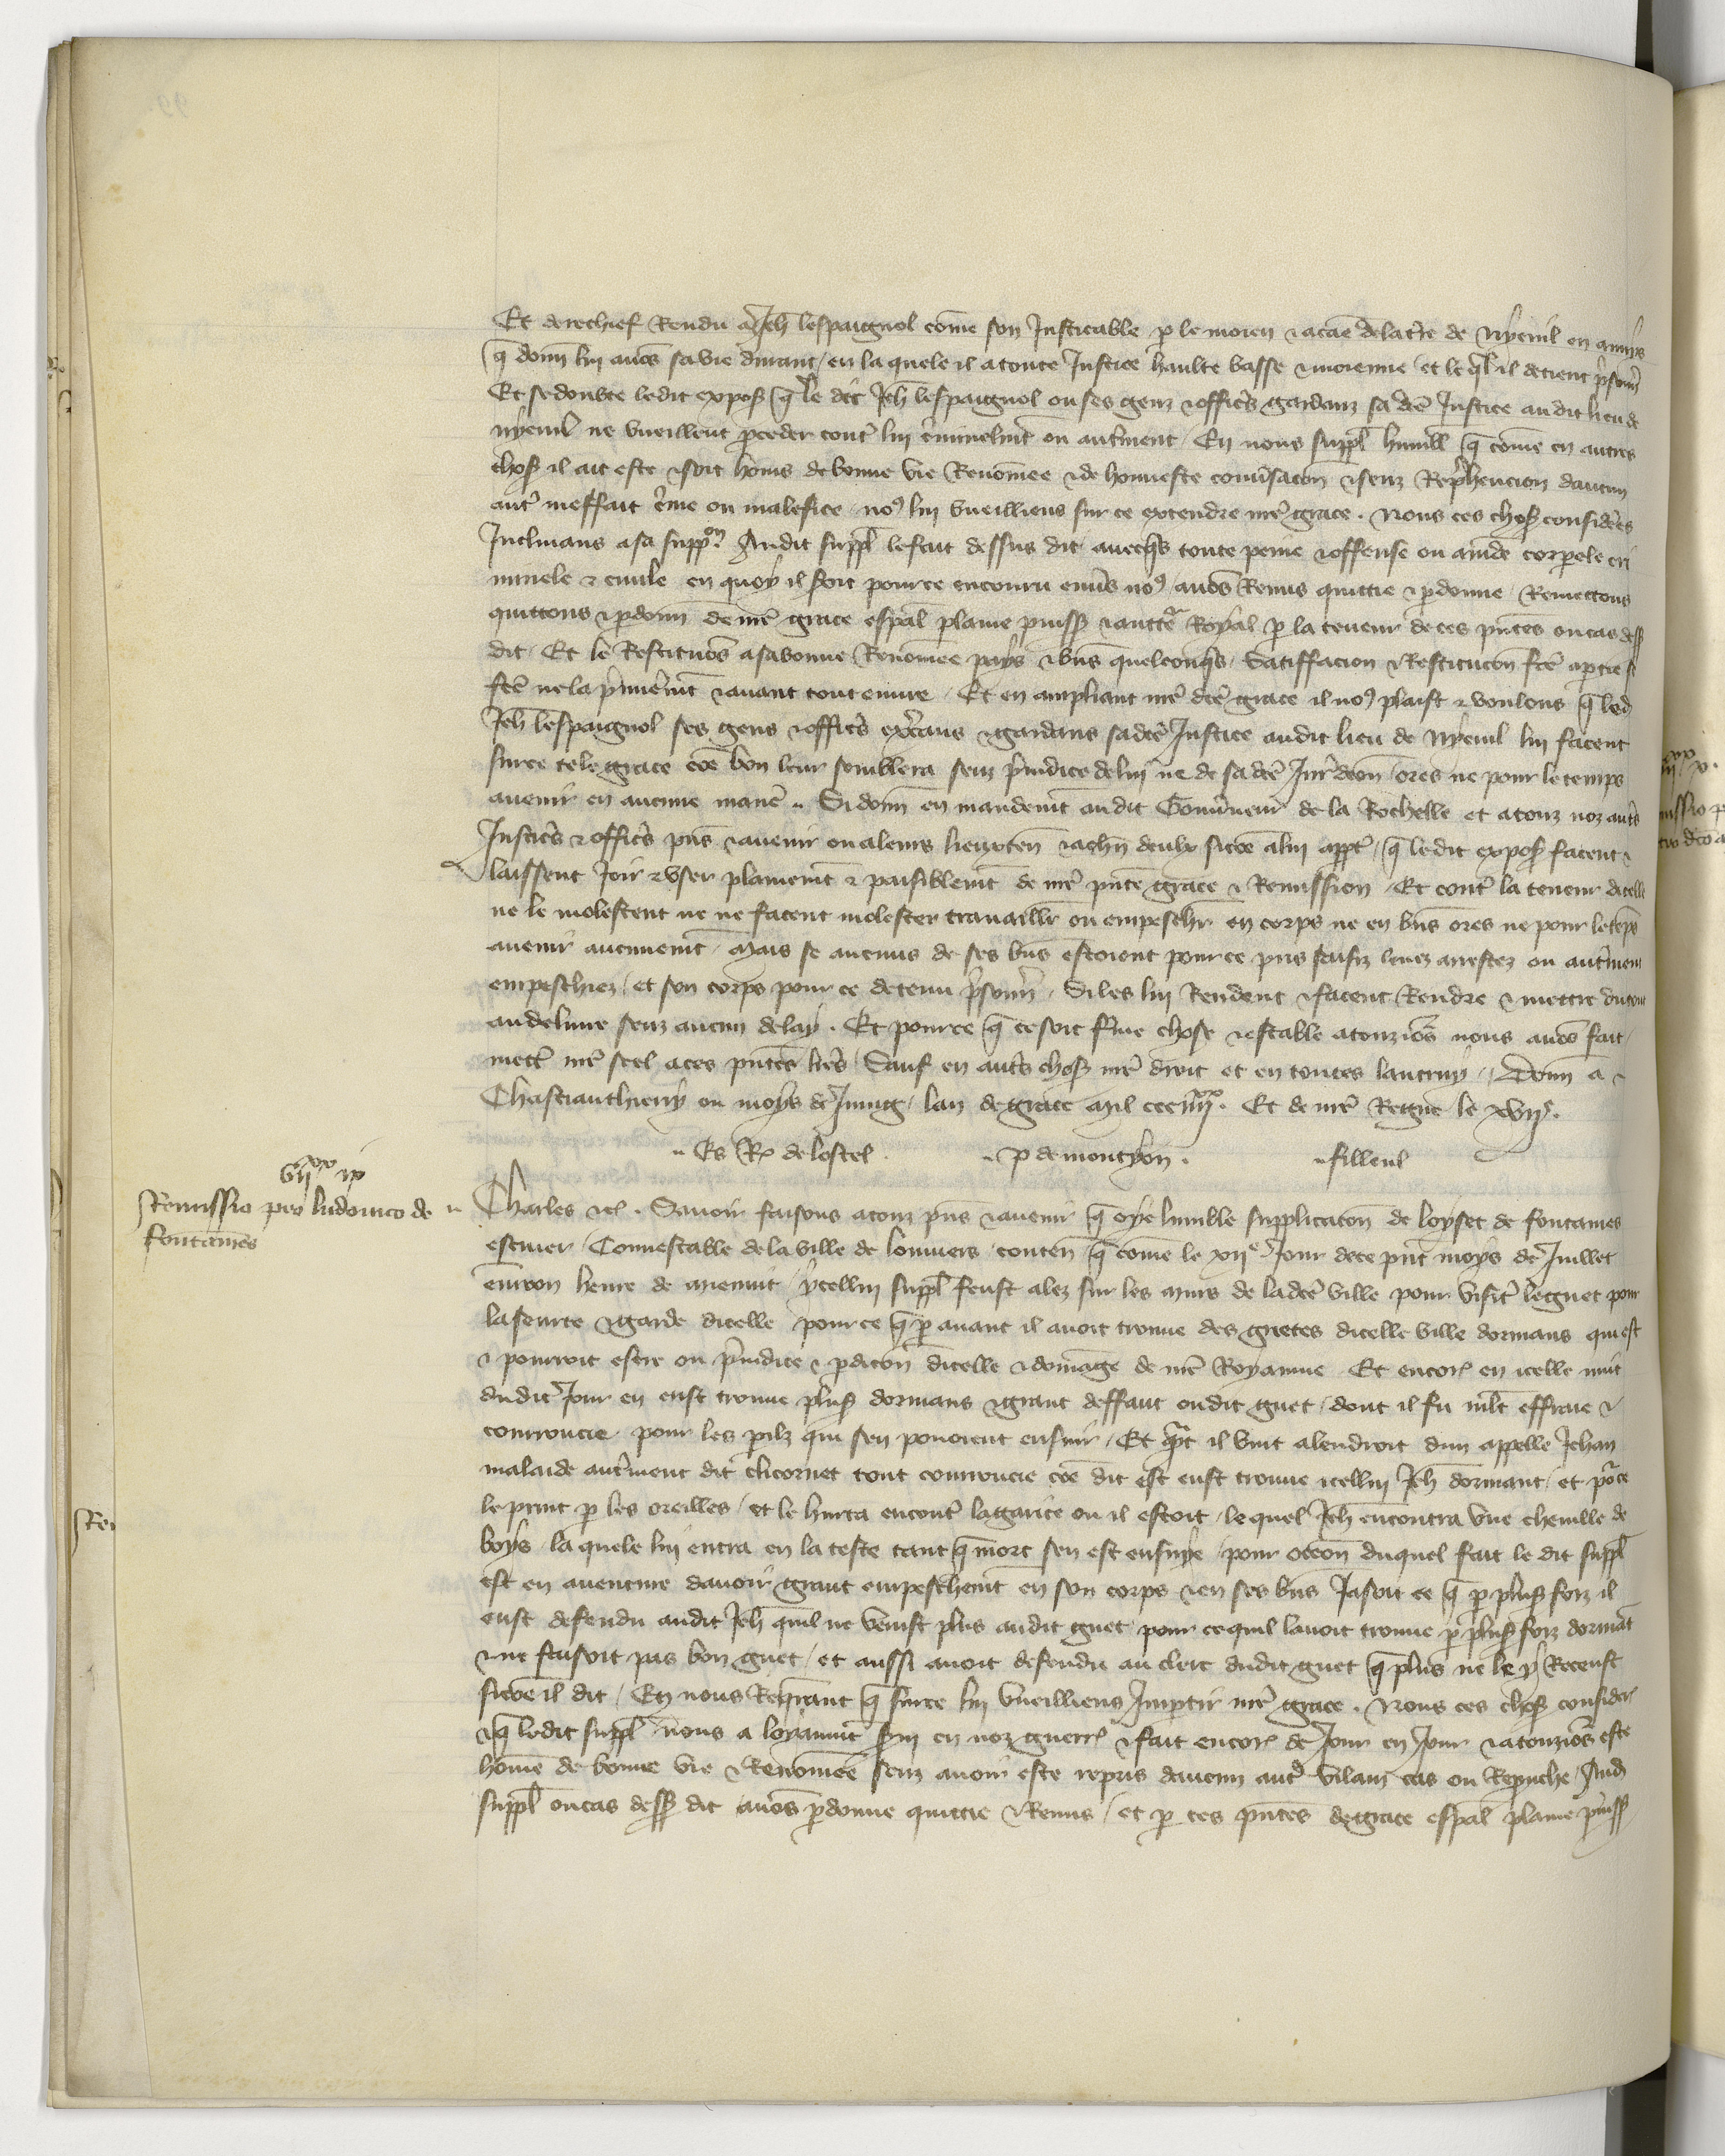 Et derechief Rendu a Jeh lespaignol come son Justicable p le moien & a cae de la tre de Nyeuil en aunys
q donn lui auos sa vie durant / en la quele il a toute Justice haulte basse & moienne / et le ql il detient prisonn
Et se doubte ledit expos q le dit Jeh lespaignol ou ses genz & offices gardanz sa dce Justice audit lieu de
nyeuil ne vueillent proceder contr lui criminelmt ou autrment / En nous suppl humbl q come en autres
choses il ait este & soit homs de bonne vie Renomee & de honneste conusacon & senz Reprehencion daucun
autr meffait crime ou malefice nos lui vueilliens sur ce extendre nre grace . Nous ces choses considees
Inclinans a sa suppon Audit suppl le fait dessus dit auecqs toute peine & offense ou amde corpele cri
minele & ciuile en quoy il soit pour ce encouru enuers nos auos Remis quittie & pdonne / Remettons
quittons & pdonn de nre grace espal plaine puiss & auctte Royal p la teneur de ces pntes ou cas dess
dit / Et le Restituos a sa bonne Renomee pays & bns quelconqs / Satiffacion & Restitucon fce a ptie se
fce ne la pmieremt & auant tout euure / Et en ampliant nre dce grace il nos plaist & voulons q led
Jeh lespaignol ses gens & offices exercans & gardans sa dce Justice audit lieu de Nyeuil lui facent
sur ce tele grace coe bon leur semblera senz piudice de lui ne de sa dce Jurdcon / ores ne pour le temps
auenir en aucune maniere .. Si donn en mandemt au dit Gouuneur de la Rochelle et a touz noz autrs
Justices & offices pns & auenir ou a leurs lieuxten & a chn deulx sicoe a lui apptr / q le dit expos facent &
laissent Joir & vser plainemt & paisiblemt de nre pnte grace & Remission / Et contr la teneur dicelle
ne le molestent ne ne facent molester trauaillr ou empeschr en corps ne en bns ores ne pour le temps
auenir aucunemt / Mais se aucuns de ses bns estoient pour ce pris saisiz leuez arrestez ou autrment
empeschiez / et son corps pour ce detenu prisonn / Si les lui Rendent & facent Rendre & mettre du tout
au deliure senz aucun delay . Et pour ce q ce soit ferme chose & estable a touziors nous auos fait
mettr nre scel a ces pntes lres / Sauf en autrs choses nre droit et en toutes lautruy / Donn a
Chasteauthierry ou moys de Juing / lan de grace mil ccc iiiixx. Et de nre Regne le xvije.
.. Es Req de lostel . .. P de montyon . .. filleul
vijxx ix
Remissio pro ludouico de
fontaines
Charles &c . Sauoir faisons a touz pns & auenir q oye lumble supplicaton de loyset de fontaines
escuier Connestable de la ville de louuiers conten q come le xije Jour de ce pnt moys de Juillet
enuiron heure de mienuit / ycellui suppl feust alez sur les murs de la dce ville pour visitr le guet pour
la seurte & garde dicelle pour ce q p auant il auoit trouue des guetes dicelle ville dormans qui est
& pourroit estre ou piudice & pdicon dicelle & domage de nre Royaume Et encores en icelle nuit
dudit Jour en eust trouue pluss dormans & grant deffaut oudit guet / dont il fu mlt effraie &
courroucie pour les pilz qui sen pouoient ensuir / Et qnt il vint a lendroit dun appelle Jehan
malaide autrment dit clicornet tout courroucie coe dit est eust trouue icellui Jeh dormant / et pour ce
le print p les oreilles / et le hurta encontr la garite ou il estoit / le quel Jeh encontra vne cheuille de
boys la quele lui entra en la teste tant q mort sen est ensuye / pour occon duquel fait le dit suppl
est en auenture dauoir grant empeschemt en son corps & en ses bns Jasoit ce q p pluss foiz il
eust defendu audit Jeh quil ne venist plus audit guet / pour ce quil lauoit trouue p pluss foiz dormat
& ne faisoit pas bon guet / et aussi auoit defendu au clerc dudit guet q plus ne le y Receust
sicoe il dit / En nous Requant q sur ce lui vueilliens Imptir nre grace . Nous ces choses consider
& q ledit suppl nous a loyaumt sui en noz guerres & fait encores de Jour en Jour & a touziors este
home de bonne vie & Renomee senz auoir este repris daucun autre vilain cas ou Reprouche / Aud
suppl ou cas dess dit auos pdonne quittie & Remis / et p ces pntes de grace espal plaine puiss